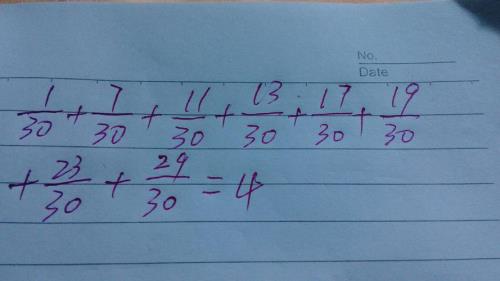 No.
Date
1/30 + 7/30 + 11/30 + 13/30 + 17/30 + 19/30
+ 23/30 + 29/30 = 4